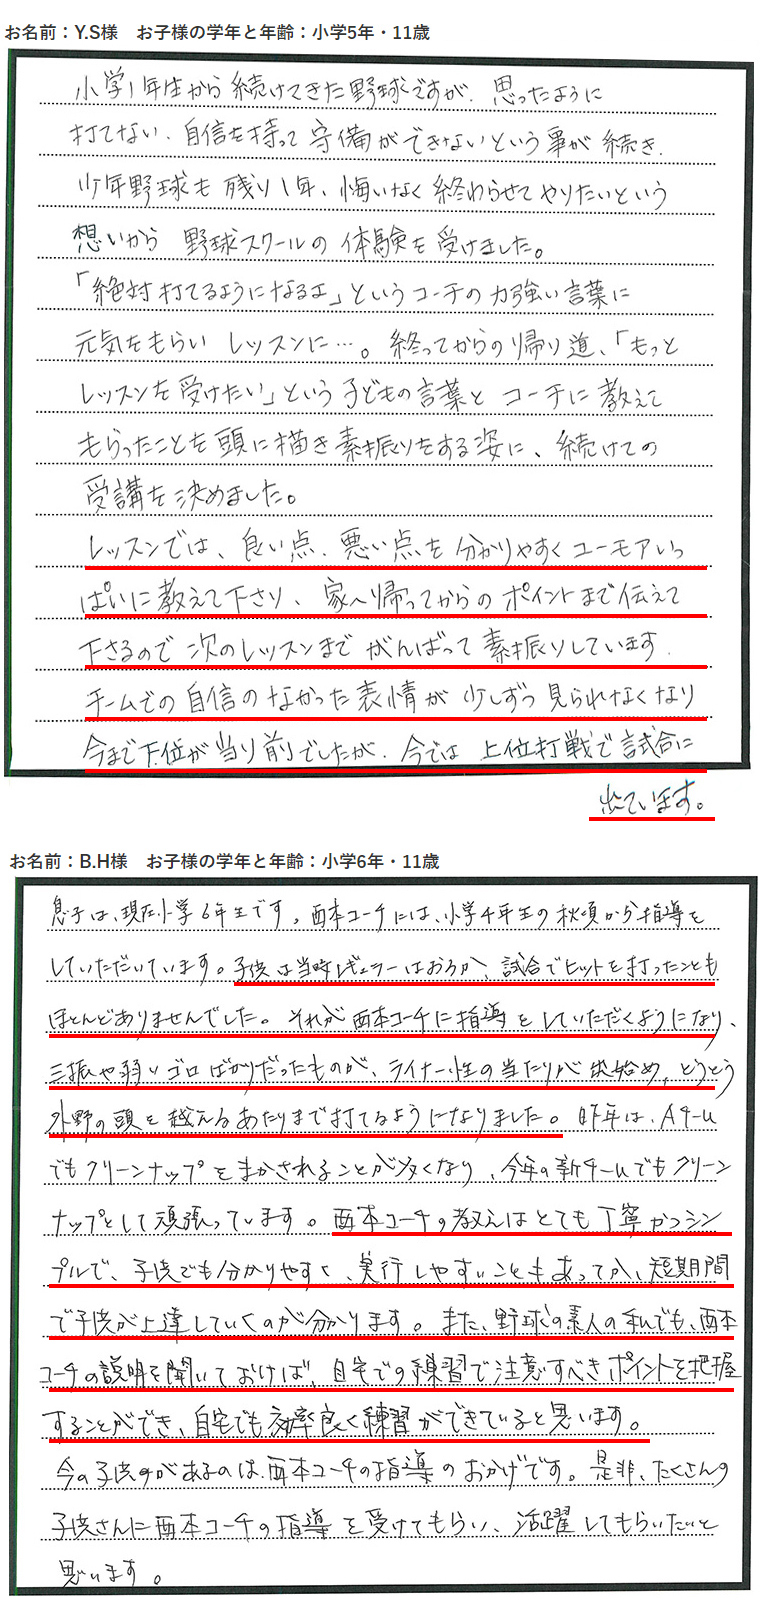 お名前：Y.S様　お子様の学年と年齢：小学5年・11歳
小学1年生から続けてきた野球ですが、思ったように
打てない、自信を持って守備ができないという事が続き、
少年野球も残り1年、悔いなく終わらせてやりたいという
想いから 野球スクールの体験を受けました。
「絶対打てるようになるよ」というコーチの力強い言葉に
元気をもらい レッスンに…。終ってからの帰り道、「もっと
レッスンを受けたい」という子どもの言葉とコーチに教えて
もらったことを頭に描き素振りをする姿に、続けての
受講を決めました。
レッスンでは、良い点、悪い点を分かりやすくユーモアいっ
ぱいに教えて下さり、家へ帰ってからのポイントまで伝えて
下さるので次のレッスンまでがんばって素振りしています。
チームでの自信のなかった表情が少しずつ見られなくなり
今まで下位が当り前でしたが、今では上位打戦で試合に
出ています。
お名前：B.H様　お子様の学年と年齢：小学6年・11歳
息子は、現在小学6年生です。西本コーチには、小学4年生の秋頃から指導を
していただいています。子供は当時レギュラーはおろか、試合でヒットを打ったことも
ほとんどありませんでした。それが西本コーチに指導をしていただくようになり、
三振や弱いゴロばかりだったものが、ライナー性の当たりが出始め、とうとう
外野の頭を越えるあたりまで打てるようになりました。昨年は、Aチーム
でもクリーンナップをまかされることが多くなり、今年の新チームでもクリーン
ナップとして頑張っています。西本コーチの教えはとても丁寧かつシン
プルで、子供でも分かりやすく、実行しやすいこともあってか、短期間
で子供が上達していくのが分かります。また、野球の素人の私でも、西本
コーチの説明を聞いておけば、自宅での練習で注意すべきポイントを把握
することができ、自宅でも効率良く練習ができていると思います。
今の子供のがあるのは、西本コーチの指導のおかげです。是非、たくさんの
子供さんに西本コーチの指導を受けてもらい、活躍してもらいたいと
思います。